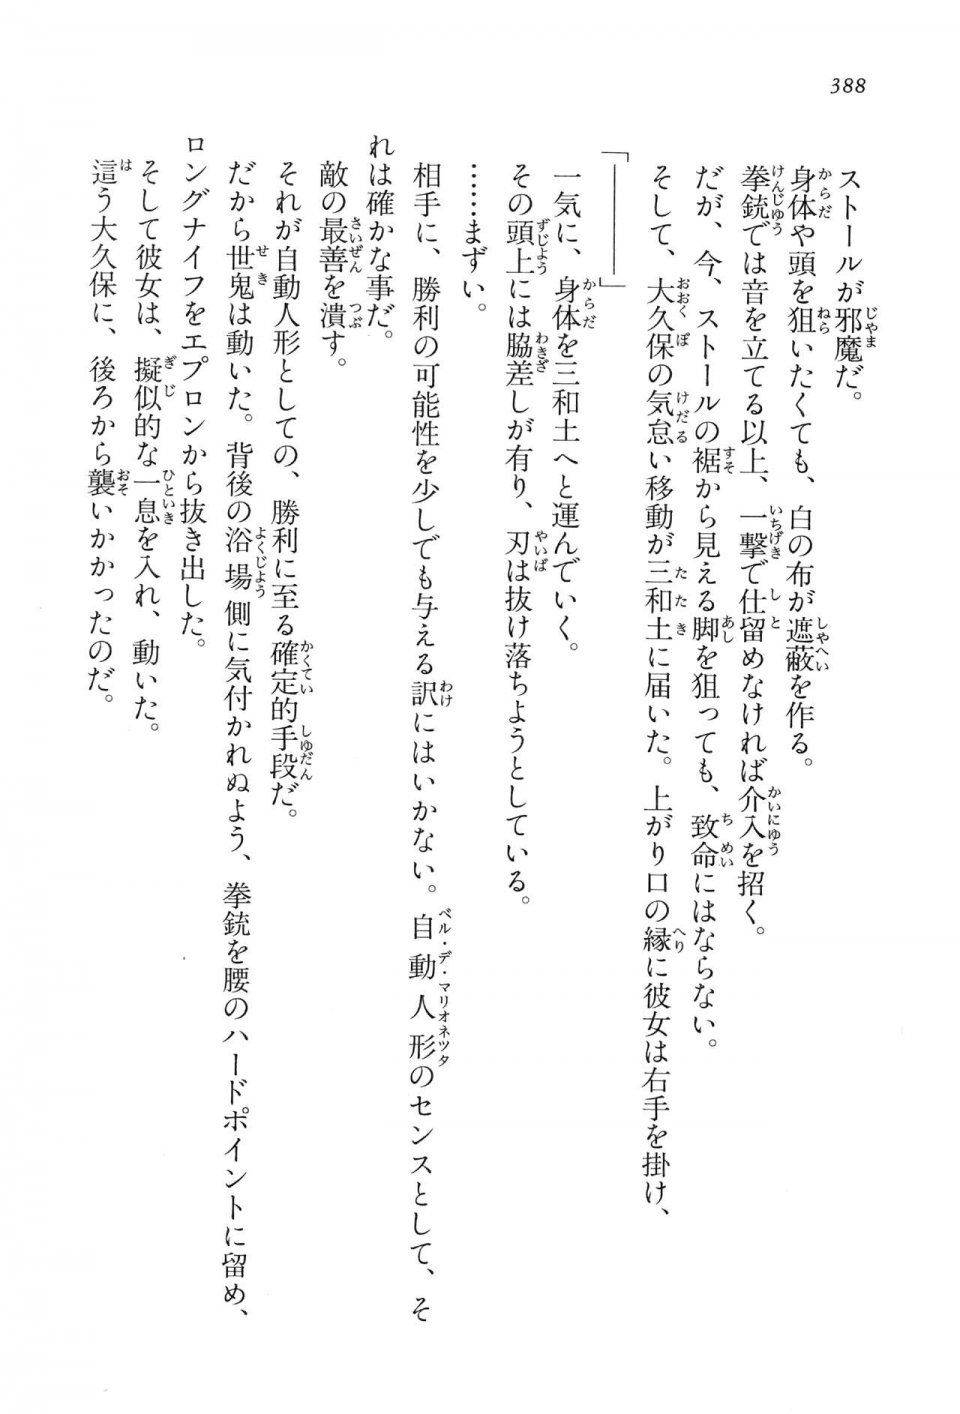 388
ストールが邪魔だ。
身体や頭を狙いたくても、白の布が遮蔽を作る。
拳銃では音を立てる以上、一撃で仕留めなければ介入を招く。
だが、今、ストールの裾から見える脚を狙っても、致命にはならない。
そして、大久保の気怠い移動が三和土に届いた。上がり口の縁に彼女は右手を掛け、
「―――」
一気に、身体を三和土へと運んでいく。
その頭上には脇差しが有り、刃は抜け落ちようとしている。
……まずい。
相手に、勝利の可能性を少しでも与える訳にはいかない。自動人形のセンスとして、そ
れは確かな事だ。
敵の最善を潰す。
それが自動人形としての、勝利に至る確定的手段だ。
だから世鬼は動いた。背後の浴場側に気付かれぬよう、拳銃を腰のハードポイントに留め、
ロングナイフをエプロンから抜き出した。
そして彼女は、擬似的な一息を入れ、動いた。
這う大久保に、後ろから襲いかかったのだ。